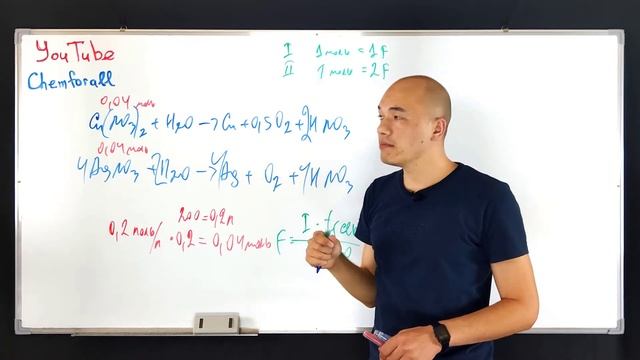 YouTube
Chemforall
I 1 моль = 1F
II 1 моль = 2F
0,04 моль
Cu(NO3)2 + H2O → Cu + 0,5O2 + 2HNO3
0,04 моль
4AgNO3 + 2H2O → 4Ag + O2 + 4HNO3
200 = 0,2л
0,2 моль/л · 0,2 = 0,04 моль
F = I · t(сек